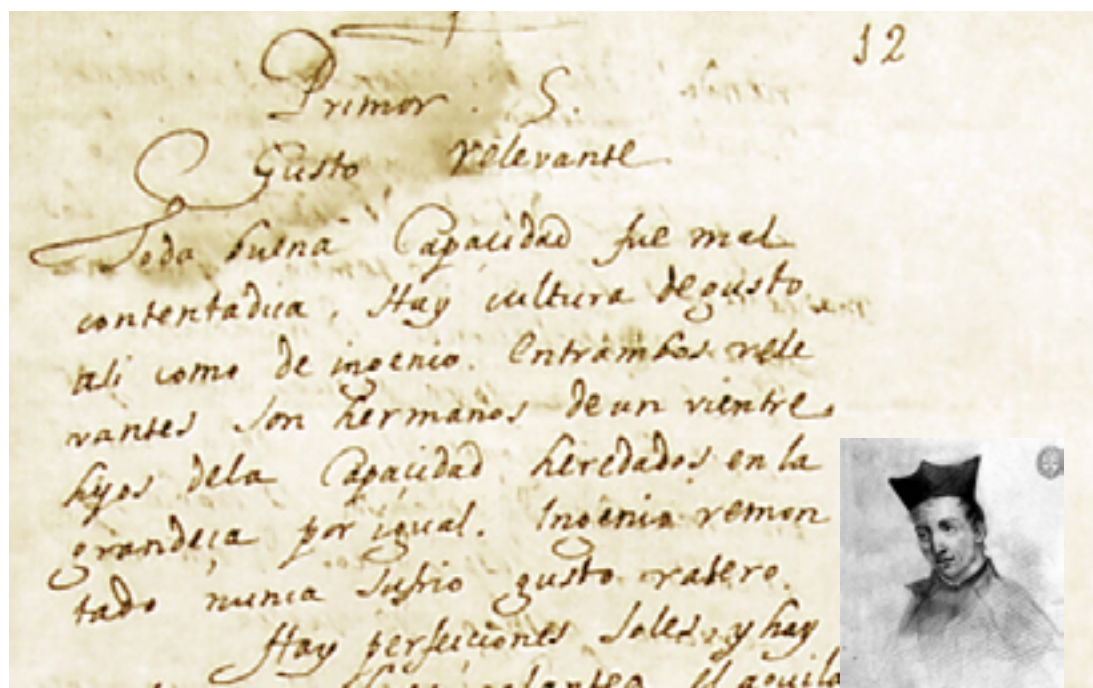 12
Primor. 5.
Gusto relevante
Toda buena Capacidad fue mal
contentadiça. Hay cultura de gusto
asi como de ingenio. Entrambos rele
vantes son hermanos de un vientre
hijos dela Capacidad heredados en la
grandeça por igual. Ingenio remon
tado nunca sufrio gusto ratero.
Hay perfeiciones soles y hay
el aguila